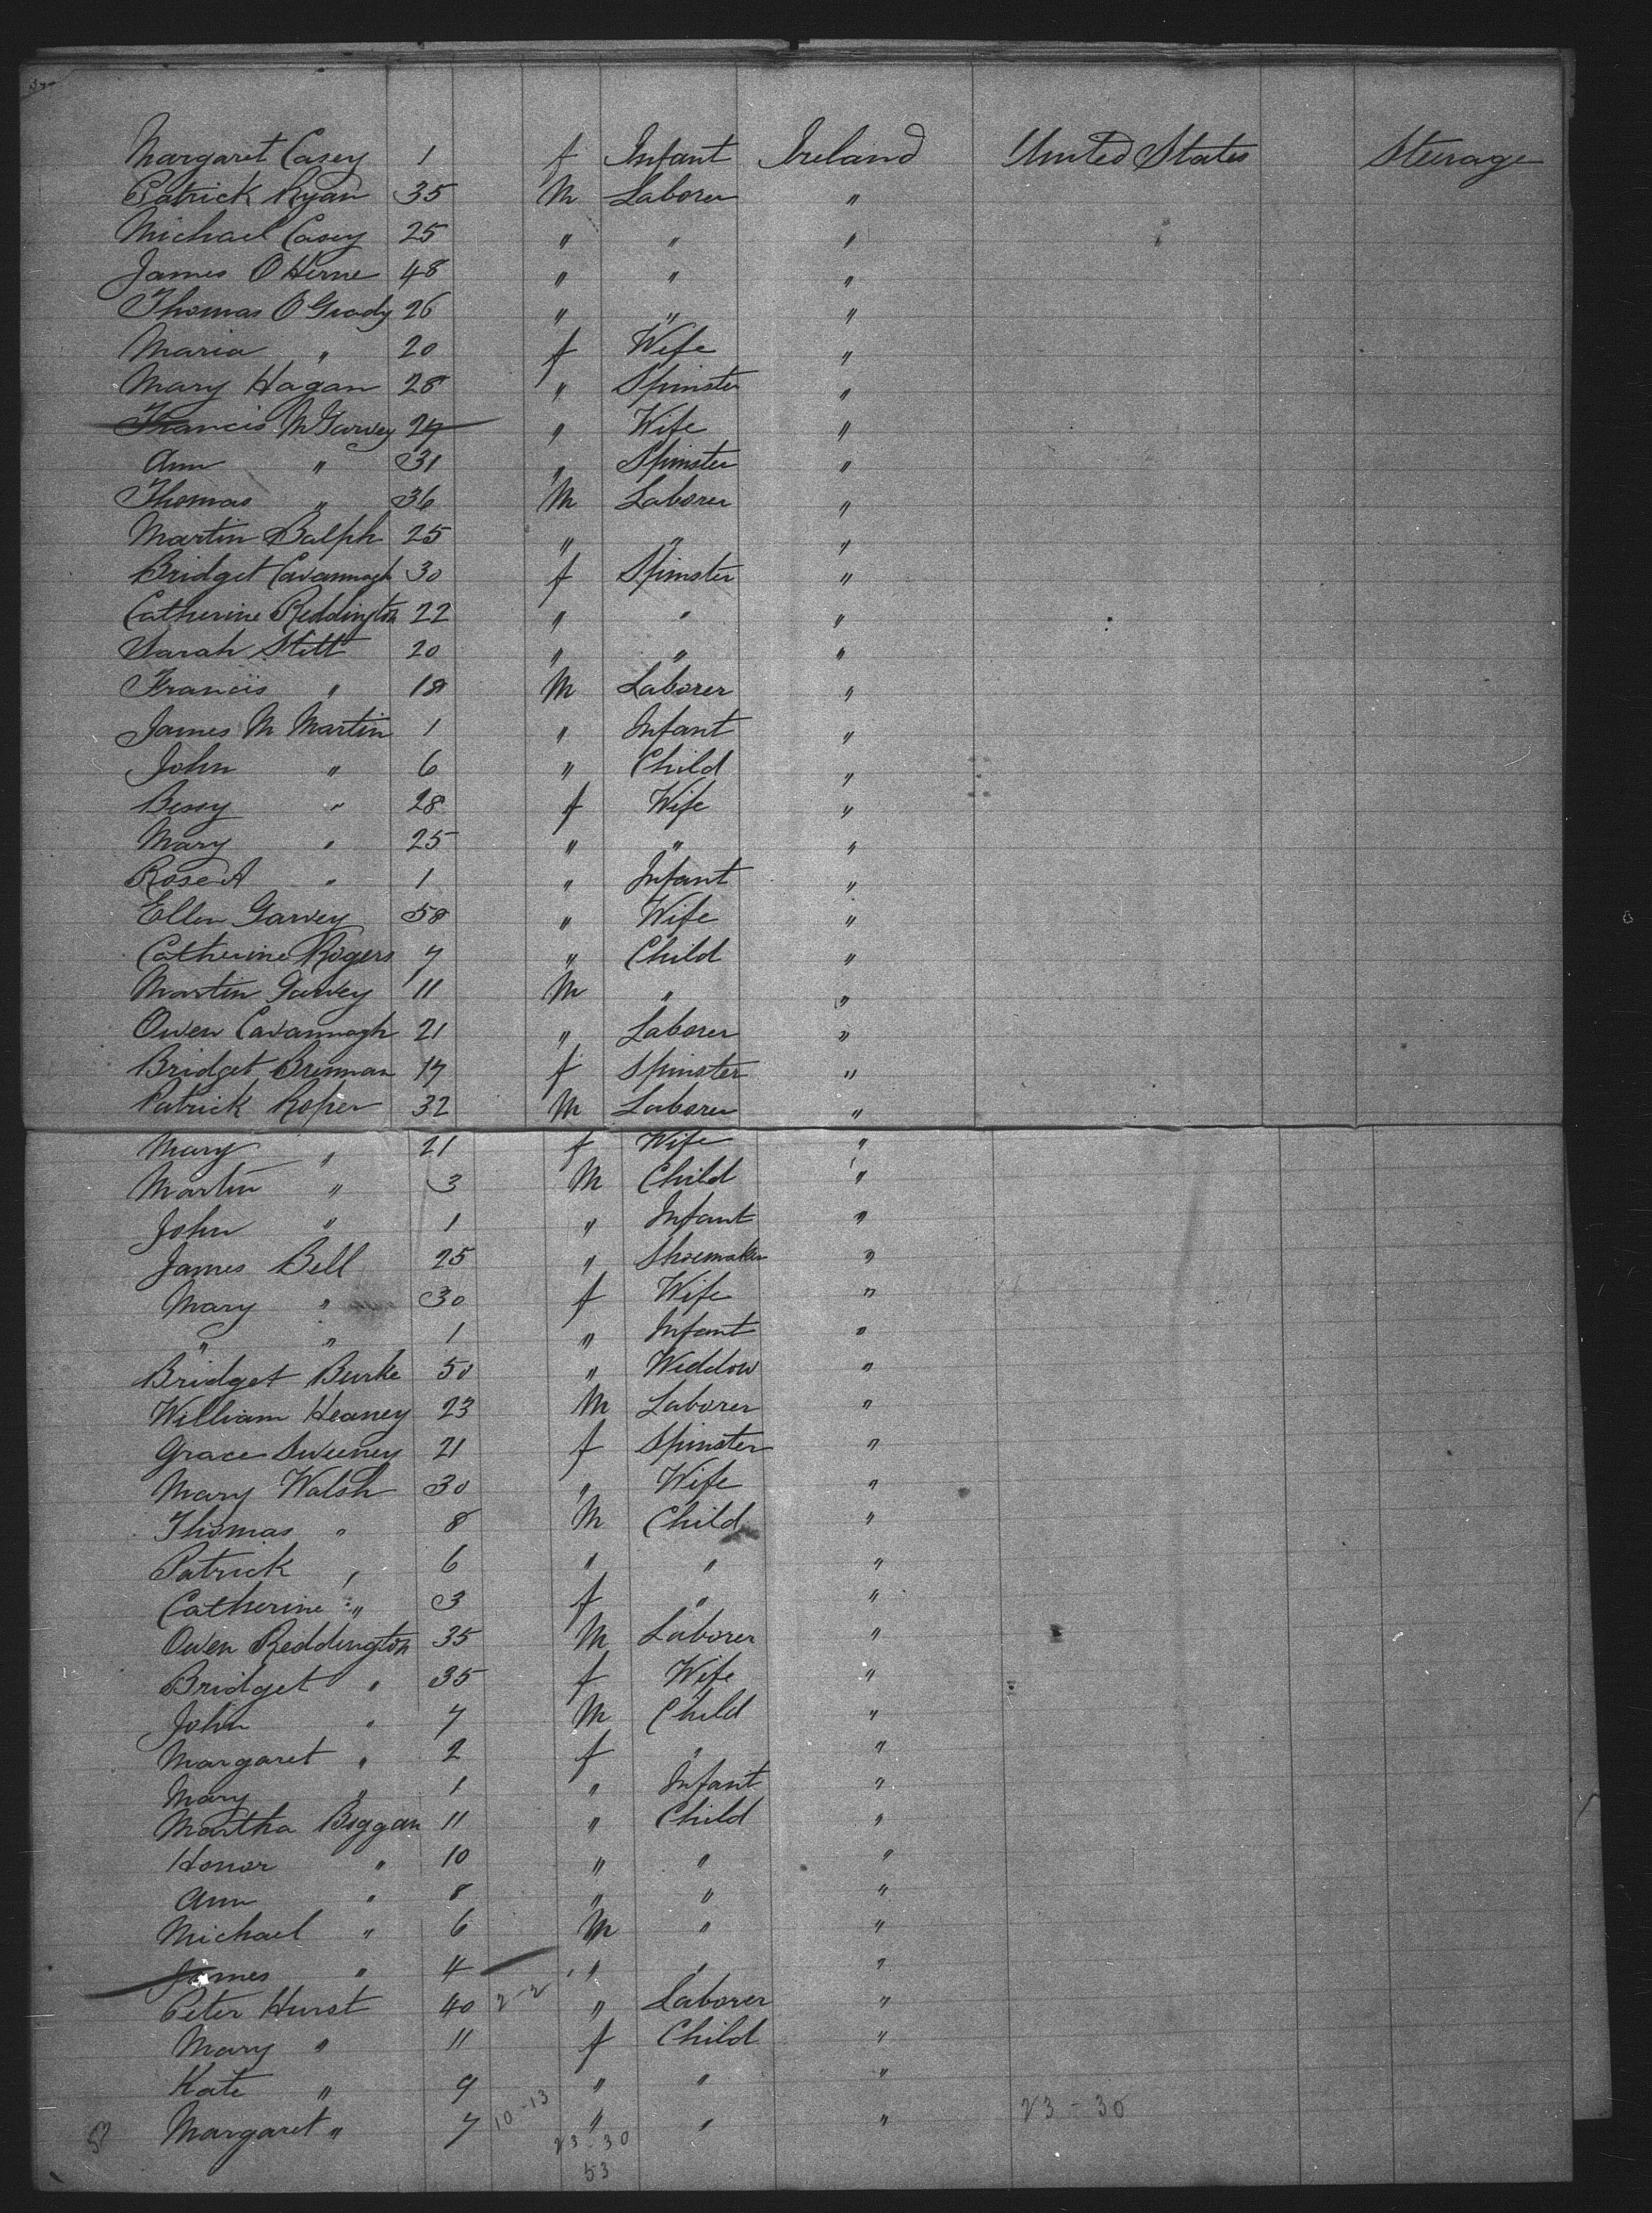 Margaret Casey 1 f Infant Ireland United States Steerage
Patrick Ryan 35 M Laborer "
Michael Casey 25 " " "
James O Herne 48 " " "
Thomas O Grady 26 " " "
Maria " 20 f Wife "
Mary Hagan 28 " Spinster "
Francis McGarvey 24 " Wife "
Ann " 31 " Spinster "
Thomas " 36 M Laborer "
Martin Balph 25 " " "
Bridget Cavannagh 30 f Spinster "
Catherine Reddington 22 " " "
Sarah Stitt 20 " " "
Francis " 18 M Laborer "
James M Martin 1 " Infant "
John " 6 " Child "
Bessy " 28 f Wife "
Mary " 25 " " "
Rose A " 1 " Infant "
Ellen Garvey 58 " Wife "
Catherine Rogers 7 " Child "
Martin Garvey 11 M " "
Owen Cavannagh 21 " Laborer "
Bridget Brennan 17 f Spinster "
Patrick Roper 32 M Laborer "
Mary " 21 f Wife "
Martin " 3 M Child "
John " 1 " Infant "
James Bell 25 " Shoemaker "
Mary " 30 f Wife "
" " 1 " Infant "
Bridget Burke 50 " Widdow "
William Heaney 23 M Laborer "
Grace Sweeney 21 f Spinster "
Mary Walsh 30 " Wife "
Thomas " 8 M Child "
Patrick " 6 " " "
Catherine " 3 f " "
Owen Reddington 35 M Laborer "
Bridget " 35 f Wife "
John " 7 M Child "
Margaret " 2 f " "
Mary " 1 " Infant "
Martha Boggan 11 " Child "
Honor " 10 " " "
Ann " 8 " " "
Michael " 6 M " "
James " 4 " " "
Peter Hurst 40 2-2 " Laborer "
Mary " 11 f Child "
Kate " 9 " " "
Margaret " 7 10-13 " " " 23-30
53 23-30
53